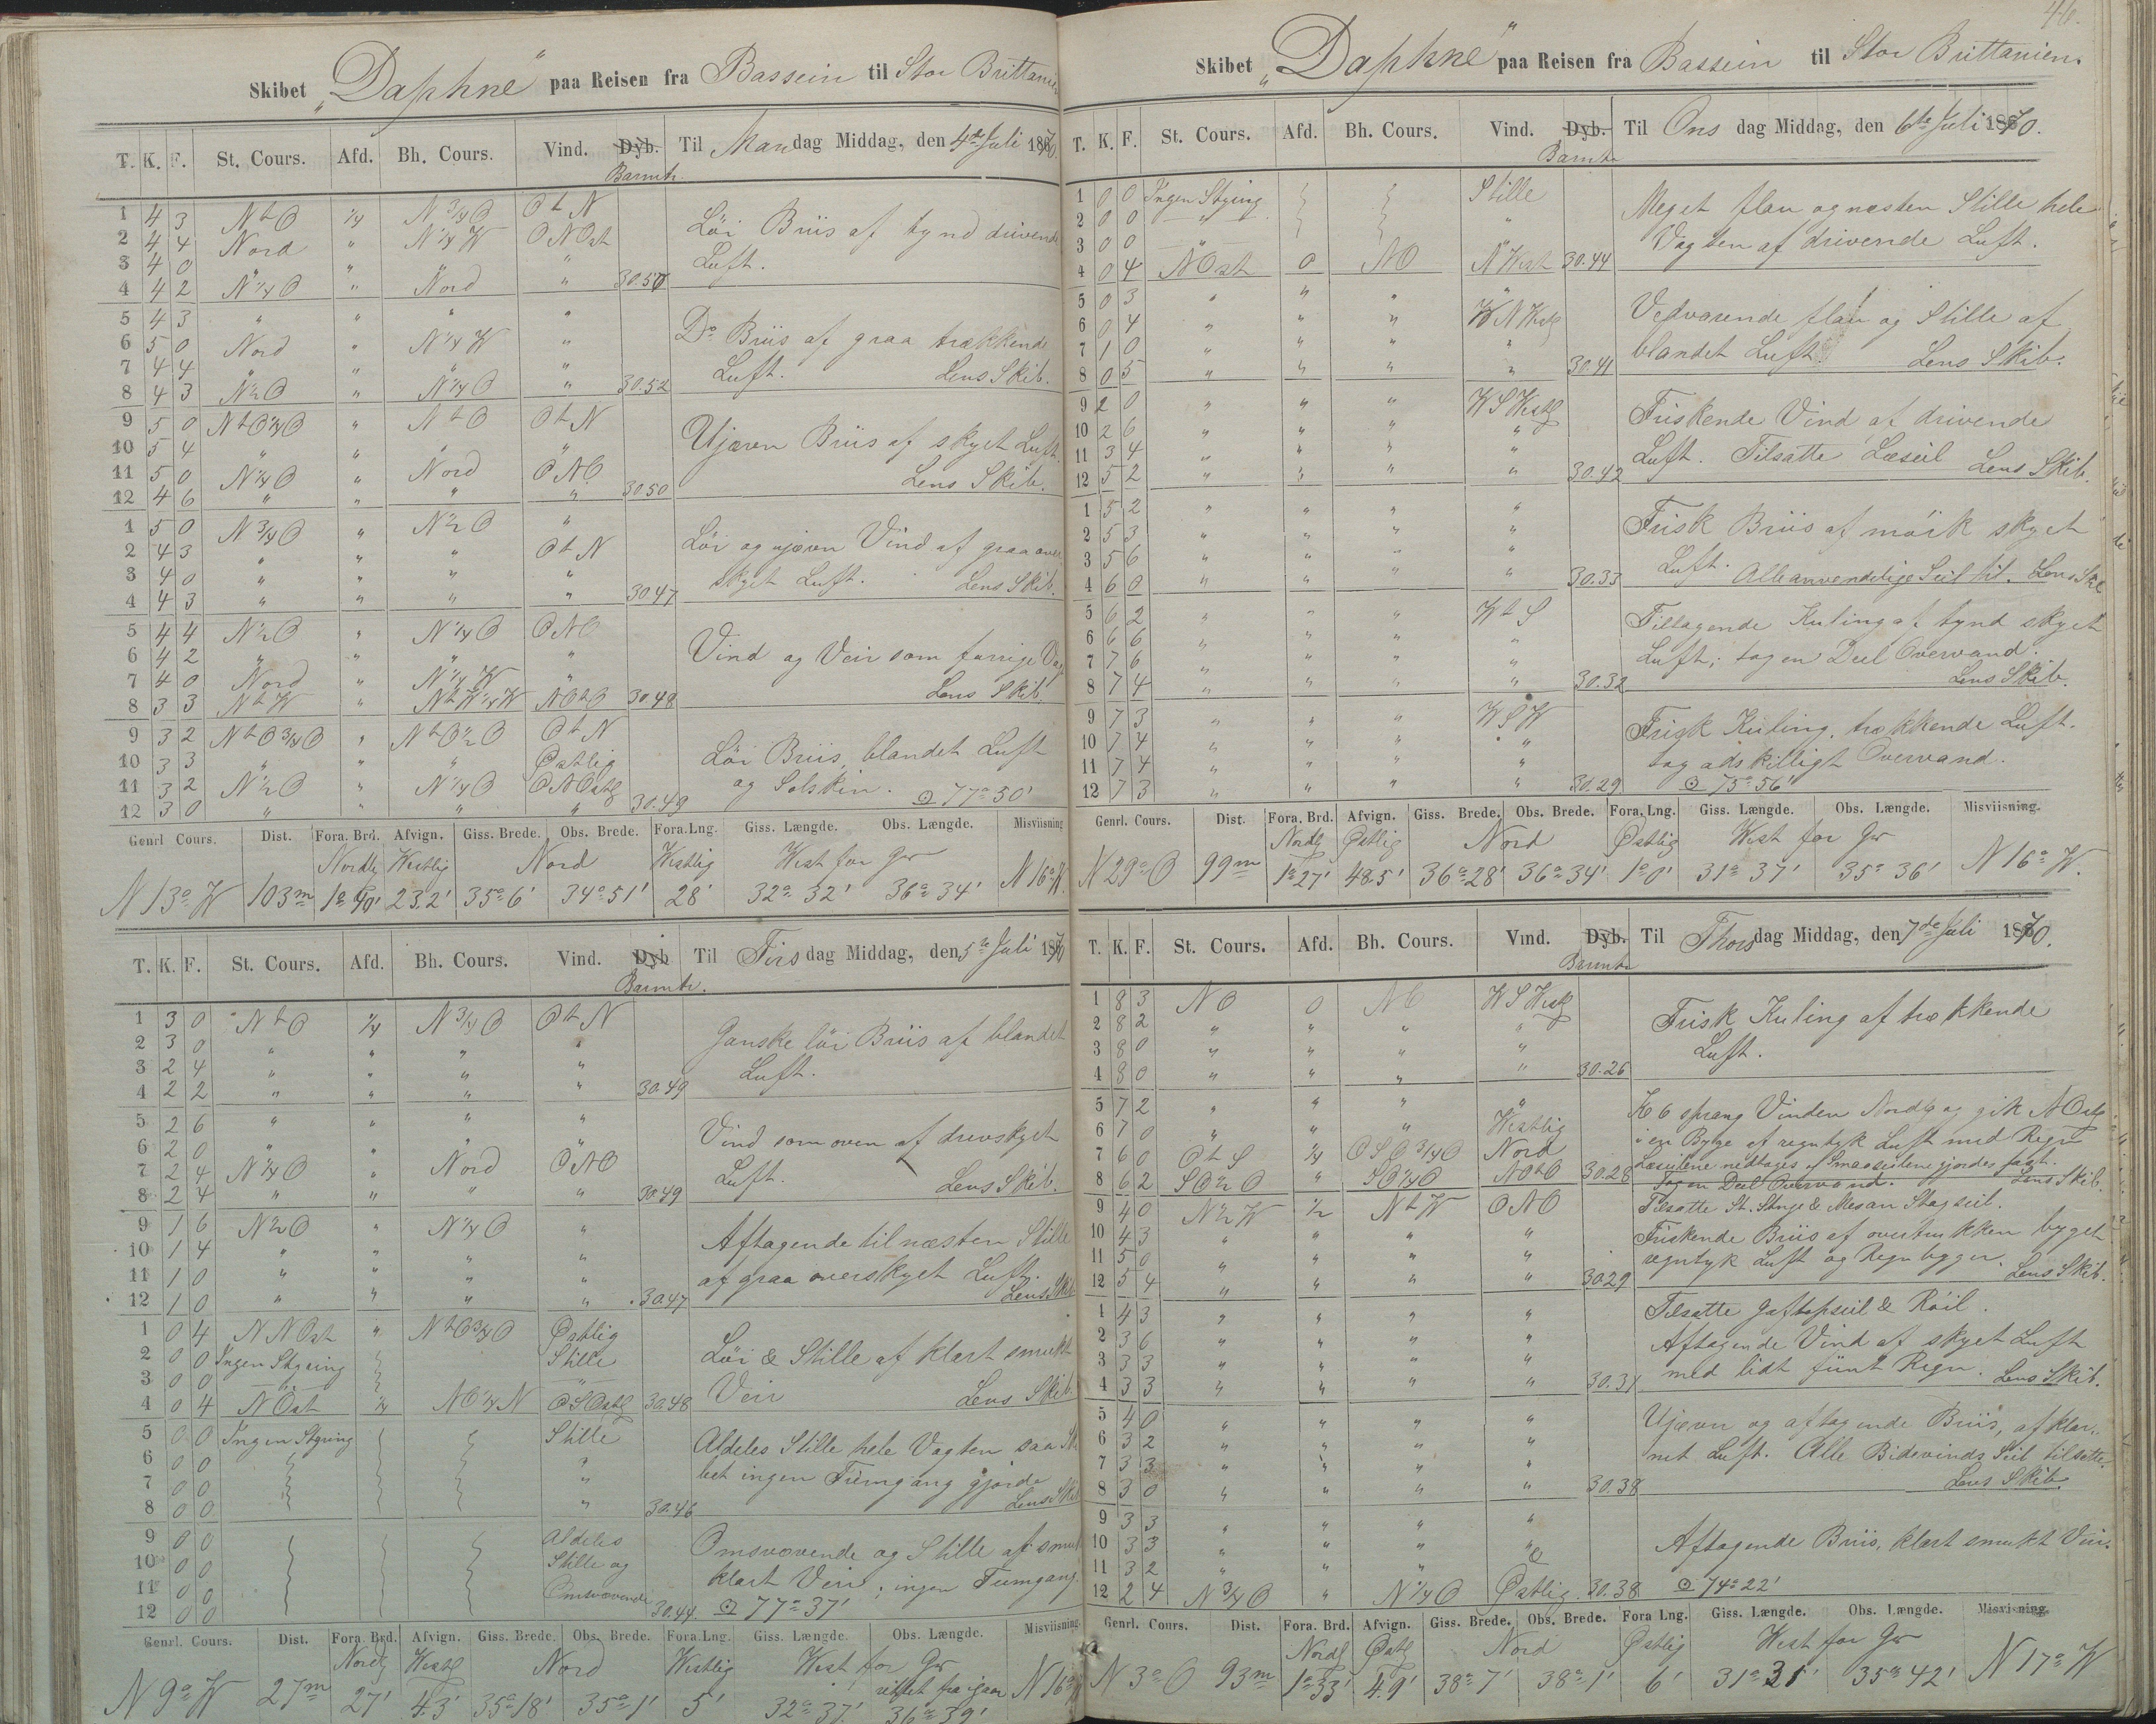 Skibet „Daphne“ paa Reisen fra Bassein til Stor Brittanien
T. K. F. St. Cours. Afd. Bh. Cours. Vind. Dyb. Barmtr. Til Mandag Middag, den 4de Juli 1870.
1 4 3 NtO ¼ N¾O OtN
2 4 4 Nord " N¼W ONOst
3 4 0 " " " "
4 4 2 N¼O " Nord " 30.50
Löi Briis af tynd drivende
Luft.
5 4 3 " " " "
6 5 0 Nord " N¼W "
7 4 4 " " " "
8 4 3 N½O " N¼O " 30.52
Do Briis af graa trækkende
Luft. Lens Skib.
9 5 0 NtO¼O " NtO OtN
10 5 4 " " " "
11 5 0 N¼O " Nord ONO
12 4 6 " " " " 30.50
Ujævn Briis af skyet Luft.
Lens Skib.
1 5 0 N¾O " N½O "
2 4 3 " " " OtN
3 4 0 " " " "
4 4 3 " " " " 30.47
Löi og ujævn Vind af graa over
skyet Luft. Lens Skib.
5 4 4 N½O " N¼O ONO
6 4 2 " " " "
7 4 0 Nord " N¼W "
8 3 3 NtW " NtW¼W NOtO 30.48
Vind og Veir som forrige Vag
Lens Skib.
9 3 2 NtO¾O " NtO½O OtN
10 3 3 " " " Østlig
11 3 2 N½O " N¼O ONOstl
12 3 0 " " " " 30.49
Löi Briis, blandet Luft
og Solskin. ⊙ 77° 30'
Genrl Cours. Dist. Fora. Brd. Afvign. Giss. Brede. Obs. Brede. Fora.Lng. Giss. Længde. Obs. Længde. Misviisning
Nordlg Westlig Nord Westlig West for Gr
N 13° W 103m 1° 40' 23.2' 35° 6' 34° 51' 28' 32° 32' 36° 34' N 16° W.
T. K. F. St. Cours. Afd. Bh. Cours. Vind. Dyb Barmtr. Til Tirsdag Middag, den 5te Juli 1870
1 3 0 NtO ¼ N¾O OtN
2 3 0 " " " "
3 2 4 " " " "
4 2 2 " " " " 30.49
Ganske löi Briis af blandet
Luft.
5 2 6 " " " "
6 2 0 " " " "
7 2 4 N¼O " Nord ONO
8 2 4 " " " " 30.49
Vind som oven af drevskyet
Luft. Lens Skib.
9 1 6 N½O " N¼O "
10 1 4 " " " "
11 1 0 " " " "
12 1 0 " " " " 30.47
Aftagende til næsten Stille
af graa overskyet Luft.
Lens Skib
1 0 4 NNOst " NtO¾O Østlig
2 0 0 Ingen Styring Stille
3 0 0 "
4 0 4 NOst ¼ NO¼N OSOstl 30.48
Löi & Stille af klart smukt
Veir Lens Skib.
5 0 0 Ingen Styring Stille
6 0 0 "
7 0 0 "
8 0 0 " 30.46
Aldeles Stille hele Vagten saa Ski
bet ingen Fremgang gjorde
Lens Skib
9 0 0 Aldeles
10 0 0 Stille og
11 0 0 Omsvævende
12 0 0 30.44
Omsvævende og Stille af smuk
klart Veir; ingen Fremgang.
⊙ 77° 37'
Genrl. Cours. Dist. Fora. Brd. Afvign. Giss. Brede. Obs. Brede. Fora.Lng. Giss. Længde. Obs. Længde. Misviisning
Nordlg Westl Nord Westlig West for Gr
rettet fra igaar
N 9° W 27m 27' 4.3' 35° 18' 35° 1' 5' 32° 37' 36° 39' N 16° W
46.
Skibet „Daphne“ paa Reisen fra Bassein til Stor Brittanien.
T. K. F. St. Cours. Afd. Bh. Cours. Vind. Dyb. Barmtr Til Onsdag Middag, den 6te Juli 1870.
1 0 0 Ingen Styring Stille
2 0 0 " "
3 0 0 "
4 0 4 NOst 0 NO NWest 30.44
Meget flau og næsten Stille hele
Vagten af drivende Luft.
5 0 3 " " " "
6 0 4 " " " WNWestl
7 1 0 " " " "
8 0 5 " " " " 30.41
Vedvarende flau og Stille af
blandet Luft. Lens Skib.
9 2 0 " " " WSWestl
10 2 6 " " " "
11 3 4 " " " "
12 5 2 " " " " 30.42
Friskende Vind af drivende
Luft. Tilsatte Læseil Lens Skib.
1 5 2 " " " "
2 5 3 " " " "
3 5 6 " " " "
4 6 0 " " " " 30.33
Frisk Briis af mörk skyet
Luft. Alle anvendelige Seil til. Lens Ski
5 6 2 " " " WtS
6 6 6 " " " "
7 7 6 " " " "
8 7 4 " " " " 30.32
Tiltagende Kuling af tynd skyet
Luft; tog en Deel Overvand.
Lens Skib.
9 7 3 " " " WSW
10 7 4 " " " "
11 7 4 " " " "
12 7 3 " " " " 30.29
Frisk Kuling, trækkende Luft.
tog adskilligt Overvand.
⊙ 75° 56'
Genrl. Cours. Dist. Fora. Brd. Afvign. Giss. Brede. Obs. Brede. Fora. Lng. Giss. Længde. Obs. Længde. Misviisning.
Nordlg Østlig Nord Østlig West for Gr
N 29° O 99m 1° 27' 48.5' 36° 28' 36° 34' 1° 0' 31° 37' 35° 36' N 16° W.
T. K. F. St. Cours. Afd. Bh. Cours. Vind. Dyb. Barmtr Til Thorsdag Middag, den 7de Juli 1870.
1 8 3 NO 0 NO WSWestl
2 8 2 " " " "
3 8 0 " " " "
4 8 0 " " " " 30.26
Frisk Kuling af trækkende
Luft.
5 7 2 " " " "
6 7 0 " " " Westlig
7 6 0 OtS ¼ OSO¾O Nord
8 6 2 SO½O " SO¼O NOtO 30.28
Kl 6 sprang Vinden Nordlg og gik NOstl
i en Byge af regntyk Luft med Regn
Læseilene nedtages & Smaaseilene gjordes fast.
Tog en Deel Overvand. Lens Skib.
9 4 0 N½W ½ NtW ONO
10 4 3 " " " "
11 5 0 " " " "
12 5 4 " " " " 30.29
Tilsatte St. Stænge & Mesan Stagseil.
Friskende Briis af overtrukken byget
regntyk Luft og Regn bygger. Lens Skib.
1 4 3 " " " "
2 3 6 " " " "
3 3 3 " " " "
4 3 3 " " " " 30.31
Tilsatte Gaftopseil & Röil.
Aftagende Vind af skyet Luft
med lidt fiint Regn. Lens Skib.
5 4 0 " " " "
6 3 2 " " " "
7 3 3 " " " "
8 3 0 " " " " 30.38
Ujævn og aftagende Briis, af klar
net Luft. Alle Bidevinds Seil tilsatte.
Lens Skib.
9 3 3 " " " "
10 3 3 " " " "
11 3 2 " " "
12 2 4 N¾O " N¼O Østlig 30.38
Aftagende Briis, klart smukt Veir.
⊙ 74° 22'
Genrl. Cours. Dist. Fora. Brd. Afvign. Giss. Brede. Obs. Brede. Fora Lng. Giss. Længde. Obs. Længde. Misvisning.
Nordlg Østl Nord Østlig West for Gr
N 3° O 93m 1° 33' 4.9' 38° 7' 38° 1' 6' 31° 31' 35° 42' N 17° W